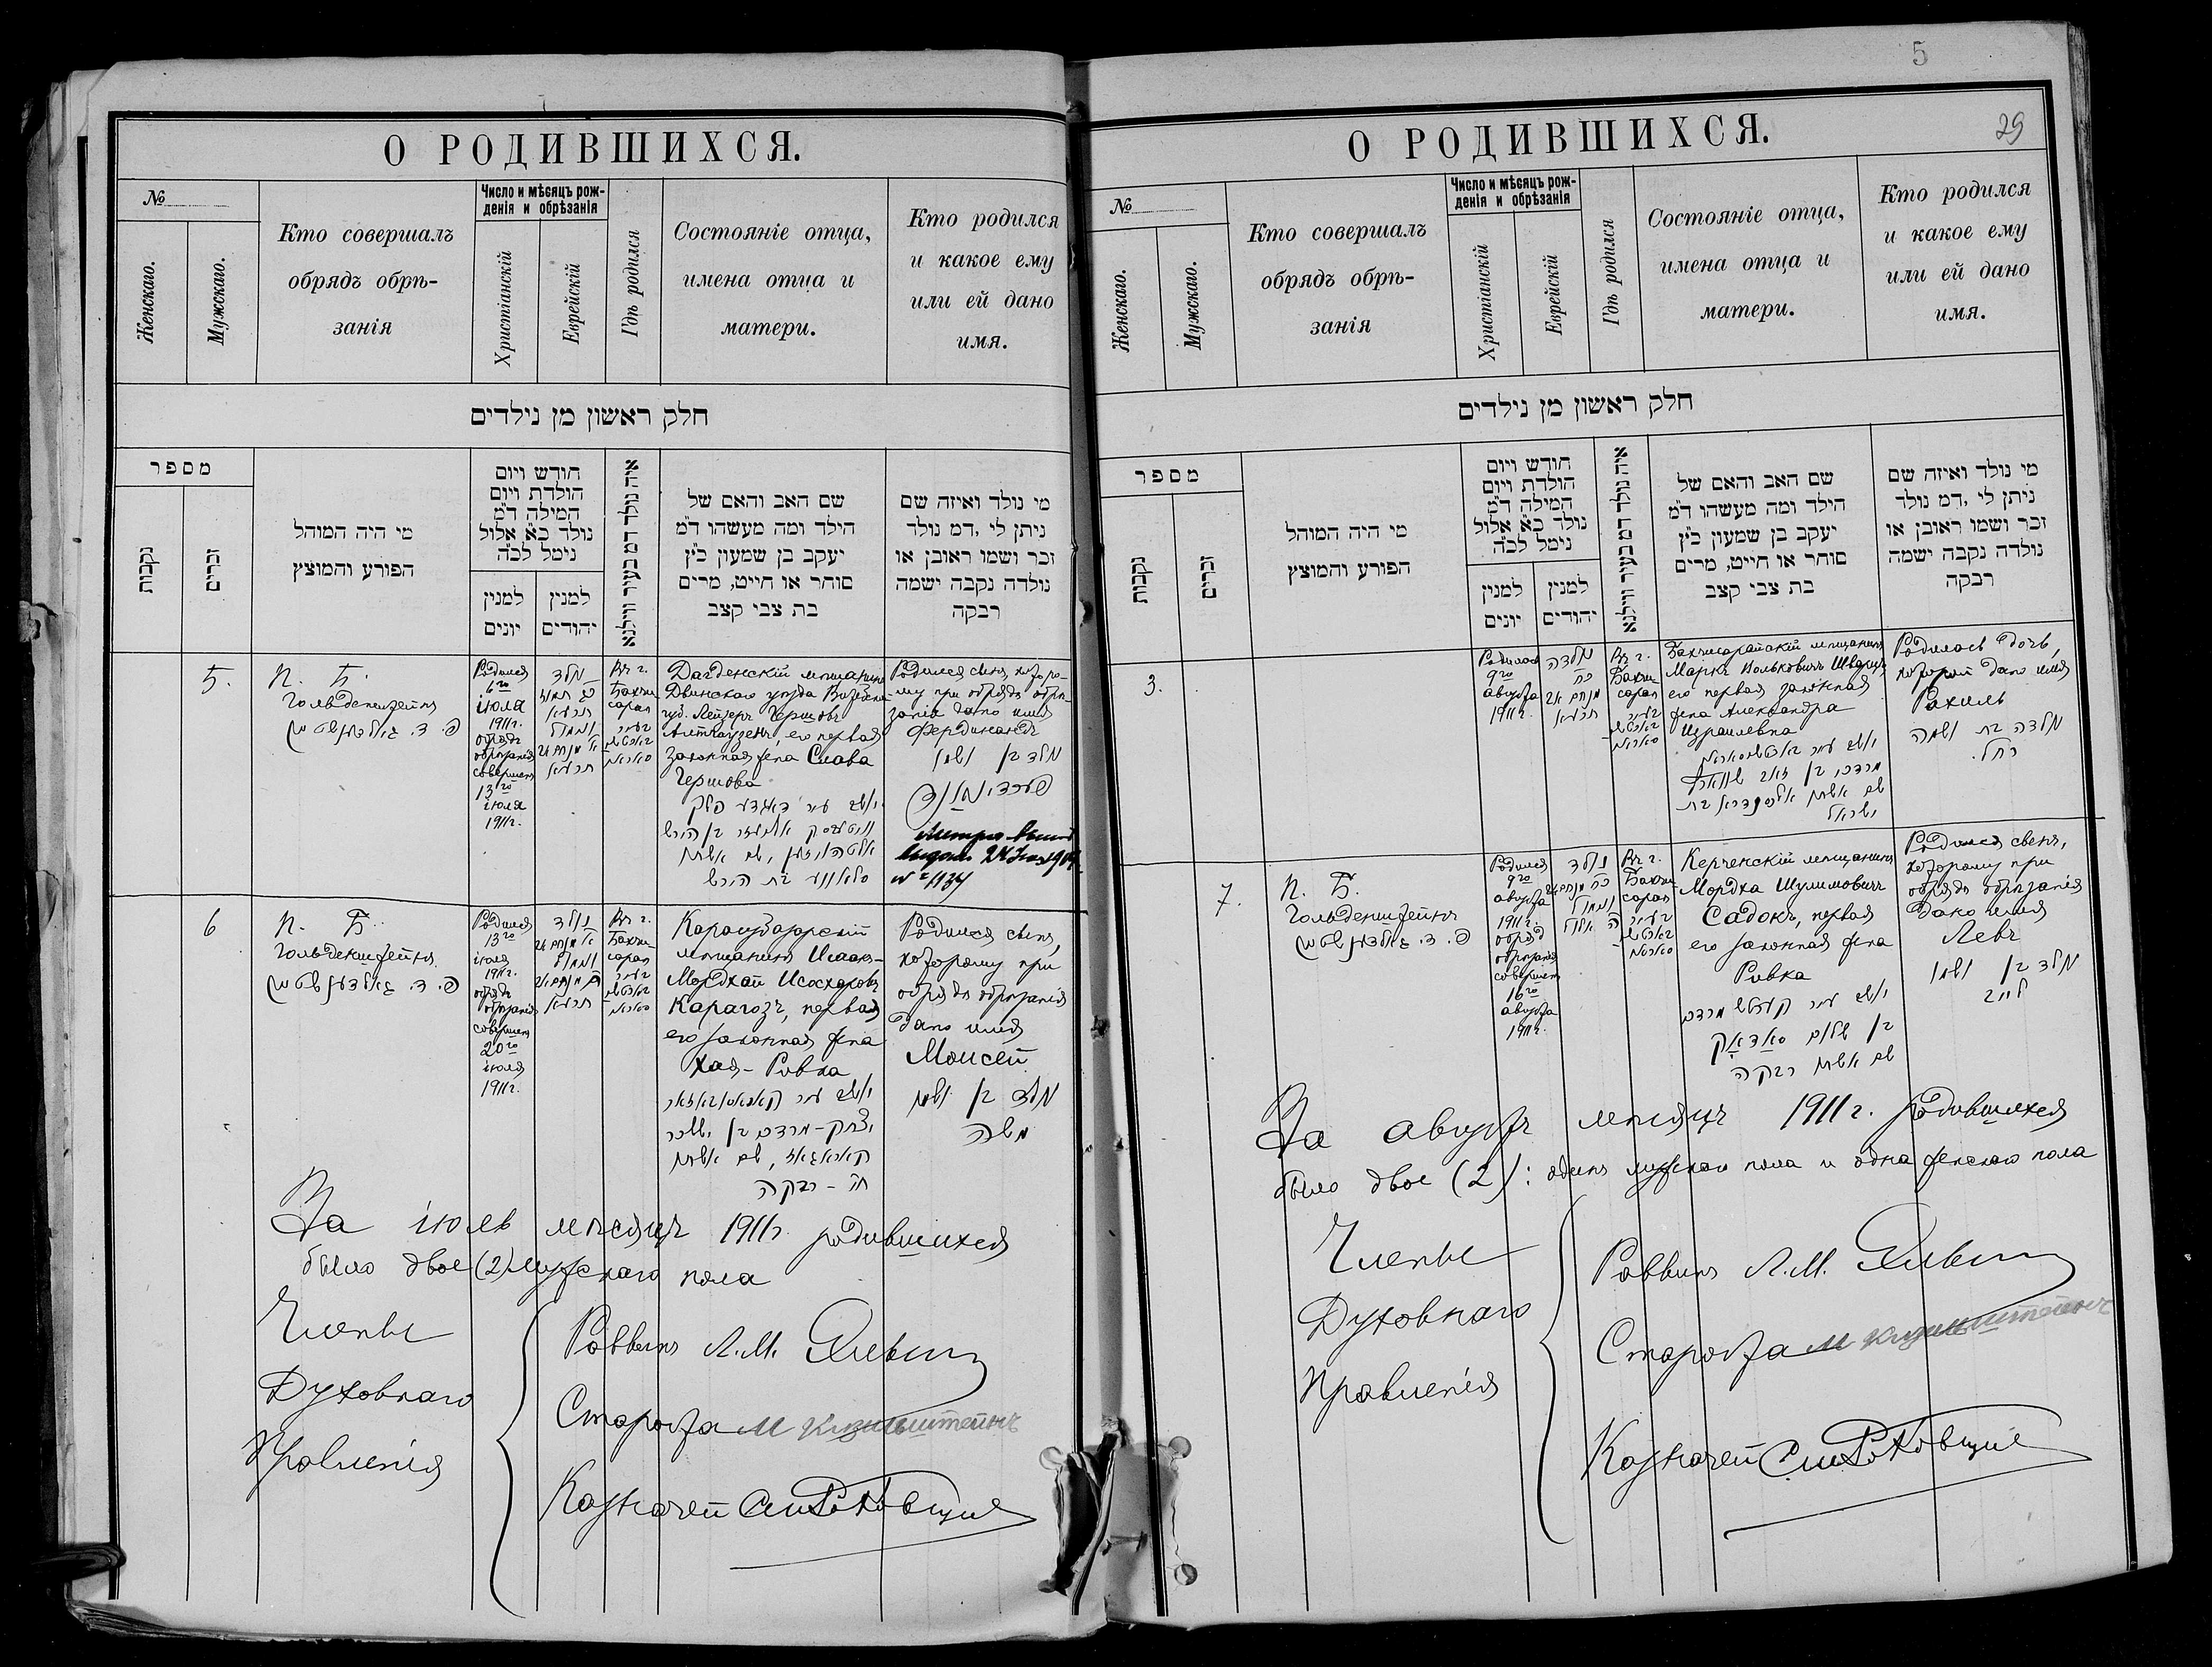 О РОДИВШИХСЯ.
№
Женскаго.
Мужскаго.
Кто совершалъ
обрядъ обрѣ-
занія
Число и мѣсяцъ рож-
денія и обрѣзанія
Христіанскій
Еврейскій
Гдѣ родился
Состояніе отца,
имена отца и
матери.
Кто родился
и какое ему
или ей дано
имя.
חלק ראשון מן נילדים
מספר
נקבות
זכרים
מי היה המוהל
הפורע והמוצץ
חודש ויום
הולדת ויום
המילה ד״מ
נולד כ״א אלול
נימל לכ״ה
למנין
יונים
למנין
יהודים
איה נולד דמ בעיר ווילנא
שם האב והאם של
הילד ומה מעשהו ד״מ
יעקב בן שמעון כ״ץ
סוחר או חייט, מרים
בת צבי קצב
מי נולד ואיזה שם
ניתן לי ,דמ נולד
זכר ושמו ראובן או
נולדה נקבה ישמה
רבקה
5.
П. Б.
Гольденштейнъ
פ. ד. גאלדענשטיין
Родился
6го
іюля
1911г.
обрядъ
обрѣзанія
совершенъ
13го
іюля
1911г.
נולד
כג תמוז
תרעא
ונמול
תרעא
Въ г.
Бахчи-
сараѣ
Дагденскій мѣщанинъ
Двинскаго уѣзда Витебск.
губ. Лейзеръ Гершовъ
Альтгаузенъ, его первая
законная жена Слава
Гершова
Родился сынъ, которо-
му при обрядѣ обрѣ-
занія дано имя
Фердинандъ
נולד בן ושמו
פערדינאנד
6
П. Б.
Гольденштейнъ
פ. ד. גאלדענשטיין
Родился
13го
іюля
1911г.
обрядъ
обрѣзанія
совершенъ
20го
іюля
1911г.
נולד
ונמול
תרעא
Въ г.
Бахчи-
сараѣ
Карасубазарскій
мѣщанинъ Исаакъ-
Мордхай Исосхоровъ
Карагозъ, первая
его законная жена
Хая-Ривка
יצחק-מרדכי בן יששכר
קאראגאז, שם אשתו
חיה - רבקה
Родился сынъ,
которому при
обрядѣ обрѣзанія
дано имя
Моисей
נולד בן ושמו
משה
За іюль мѣсяцъ 1911г. родившихся
было двое (2) мужскаго пола
Члены
Духовнаго
Правленія
Раввинъ Л.М.
Староста М Кизильштейнъ
Казначей
5
29
О РОДИВШИХСЯ.
№
Женскаго.
Мужскаго.
Кто совершалъ
обрядъ обрѣ-
занія
Число и мѣсяцъ рож-
денія и обрѣзанія
Христіанскій
Еврейскій
Гдѣ родился
Состояніе отца,
имена отца и
матери.
Кто родился
и какое ему
или ей дано
имя.
חלק ראשון מן נילדים
מספר
נקבות
זכרים
מי היה המוהל
הפורע והמוצץ
חודש ויום
הולדת ויום
המילה ד״מ
נולד כ״א אלול
נימל לכ״ה
למנין
יונים
למנין
יהודים
איה נולד דמ בעיר ווילנא
שם האב והאם של
הילד ומה מעשהו ד״מ
יעקב בן שמעון כ״ץ
סוחר או חייט, מרים
בת צבי קצב
מי נולד ואיזה שם
ניתן לי ,דמ נולד
זכר ושמו ראובן או
נולדה נקבה ישמה
רבקה
3.
Родилась
9го
августа
1911г.
נולדה
תרעא
Въ г.
Бахчи-
сараѣ
Бахчисарайскій мѣщанинъ
Маркъ Вольковичъ Шварцъ,
его первая законная
жена Александра
Израилевна
מרדכי בן זאב שווארץ
שם אשתו אלכסנדרא בת
ישראל
Родилась дочь,
которой дано имя
Рахиль
נולדה בת ושמה
רחל.
7.
П. Б.
Гольденштейнъ
פ. ד. גאלדענשטיין
Родился
9го
августа
1911г.
обрядъ
обрѣзанія
совершенъ
16го
августа
1911г.
נולד
ונמול
אלול
Въ г.
Бахчи-
сараѣ
Керченскій мѣщанинъ
Мордха Шулимовичъ
Садокъ, первая
его законная жена
Ривка
בן שלום סאדאק
שם אשתו רבקה
Родился сынъ,
которому при
обрядѣ обрѣзанія
дано имя
Левъ
נולד בן ושמו
לייב
За августъ мѣсяцъ 1911г. родившихся
было двое (2): одинъ мужскаго пола и одна женскаго пола
Члены
Духовнаго
Правленія
Раввинъ Л.М.
Староста М Кизильштейнъ
Казначей